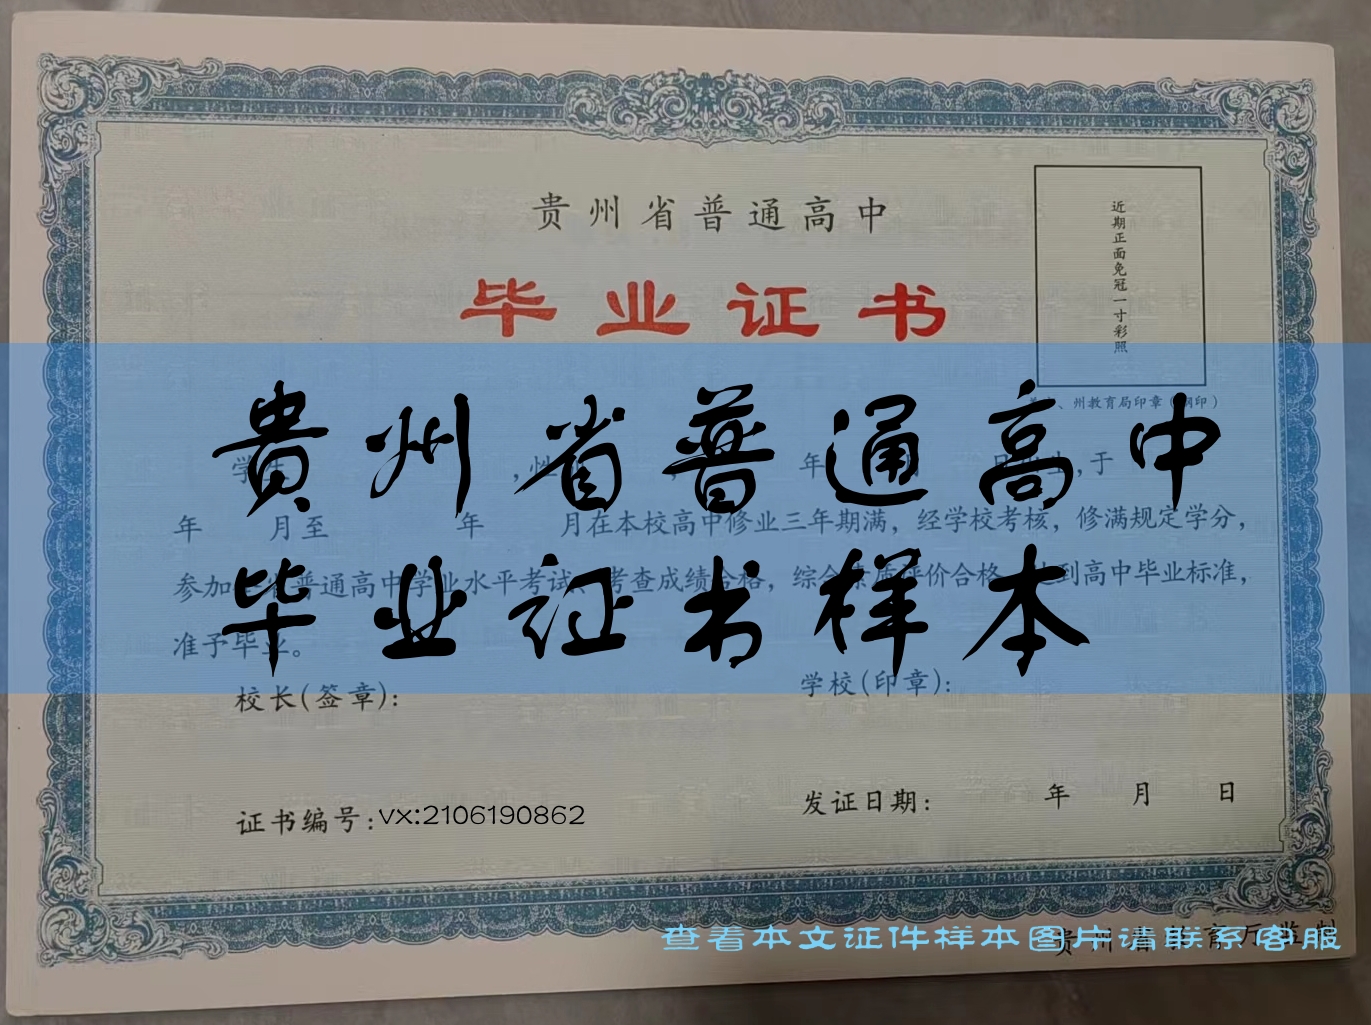 贵州省普通高中
毕业证书
近期正面免冠一寸彩照
、州教育局印章(钢印)
贵州省普通高中
学生 ,性 年 日 生,于
年 月至 年 月在本校高中修业三年期满，经学校考核，修满规定学分，
参加 省普通高中学业水平考试、考查成绩合格，综合素质评价合格 达到高中毕业标准，
毕业证书样本
准予毕业。
校长(签章):
学校(印章):
证书编号:vx:2106190862
发证日期: 年 月 日
查看本文证件样本图片请联系客服
贵州省教育厅监制